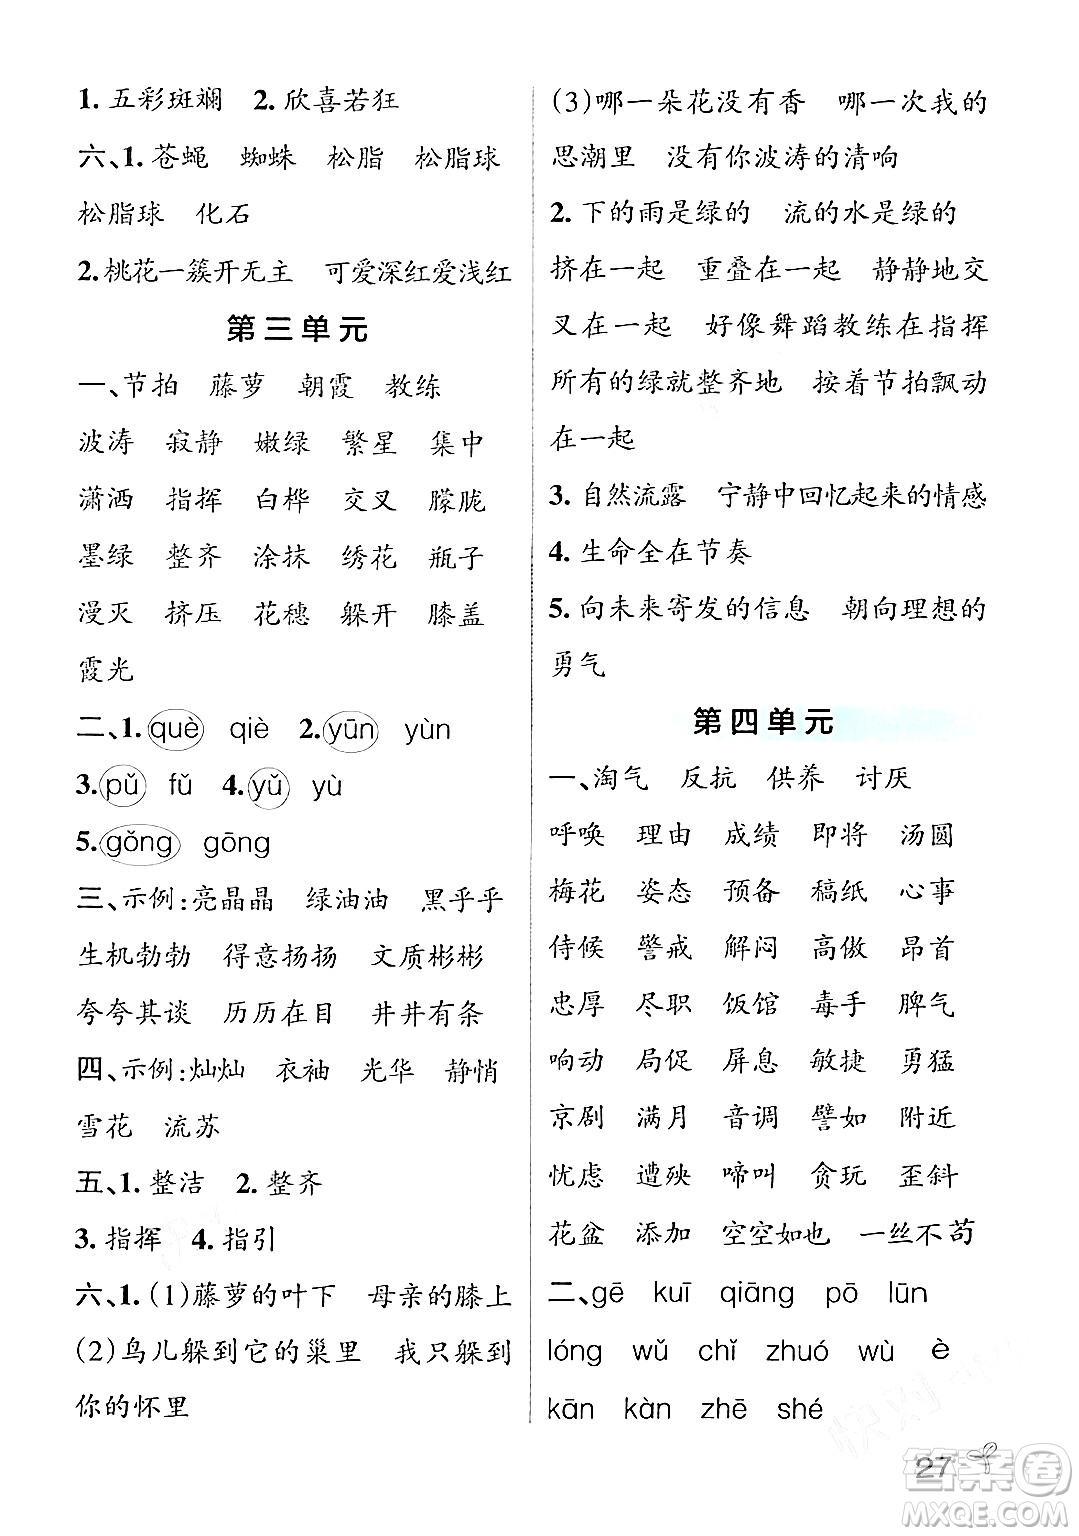 1. 五彩斑斓　2. 欣喜若狂
六、1. 苍蝇　蜘蛛　松脂　松脂球
松脂球　化石
2. 桃花一簇开无主　可爱深红爱浅红
第三单元
一、节拍　藤萝　朝霞　教练
波涛　寂静　嫩绿　繁星　集中
潇洒　指挥　白桦　交叉　朦胧
墨绿　整齐　涂抹　绣花　瓶子
漫灭　挤压　花穗　躲开　膝盖
霞光
二、1. què　qiè　2. yūn　yùn
3. pǔ　fǔ　4. yǔ　yù
5. gǒng　gōng
三、示例:亮晶晶　绿油油　黑乎乎
生机勃勃　得意扬扬　文质彬彬
夸夸其谈　历历在目　井井有条
四、示例:灿灿　衣袖　光华　静悄
雪花　流苏
五、1. 整洁　2. 整齐
3. 指挥　4. 指引
六、1. (1)藤萝的叶下　母亲的膝上
(2)鸟儿躲到它的巢里　我只躲到
你的怀里
(3)哪一朵花没有香　哪一次我的
思潮里　没有你波涛的清响
2. 下的雨是绿的　流的水是绿的
挤在一起　重叠在一起　静静地交
叉在一起　好像舞蹈教练在指挥
所有的绿就整齐地　按着节拍飘动
在一起
3. 自然流露　宁静中回忆起来的情感
4. 生命全在节奏
5. 向未来寄发的信息　朝向理想的
勇气
第四单元
一、淘气　反抗　供养　讨厌
呼唤　理由　成绩　即将　汤圆
梅花　姿态　预备　稿纸　心事
侍候　警戒　解闷　高傲　昂首
忠厚　尽职　饭馆　毒手　脾气
响动　局促　屏息　敏捷　勇猛
京剧　满月　音调　譬如　附近
忧虑　遭殃　啼叫　贪玩　歪斜
花盆　添加　空空如也　一丝不苟
二、gē　kuī　qiāng　pō　lūn
lóng　wǔ　chǐ　zhuó　wù　è
kān　kàn　zhē　shé
27
答案卷
MXQE.COM